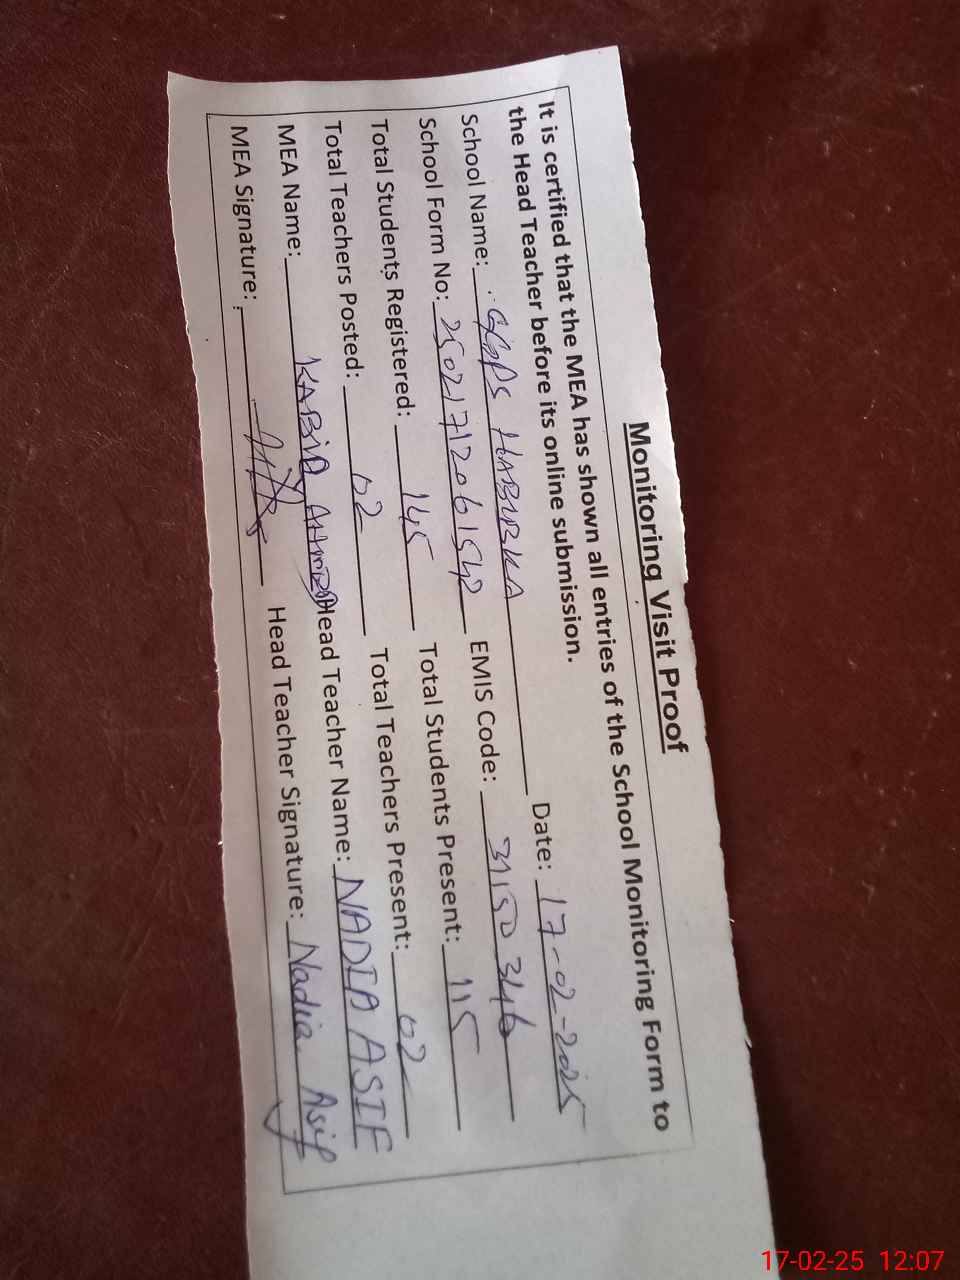 Monitoring Visit Proof
It is certified that the MEA has shown all entries of the School Monitoring Form to
the Head Teacher before its online submission.
School Name: GGPS HABIBKA Date: 17-02-2025
School Form No: 25021712061542 EMIS Code: 31150346
Total Students Registered: 145 Total Students Present: 115
Total Teachers Posted: 02 Total Teachers Present: 02
MEA Name: KABIR AHMED Head Teacher Name: NADIA ASIF
MEA Signature: Head Teacher Signature: Nadia Asif
17-02-25 12:07